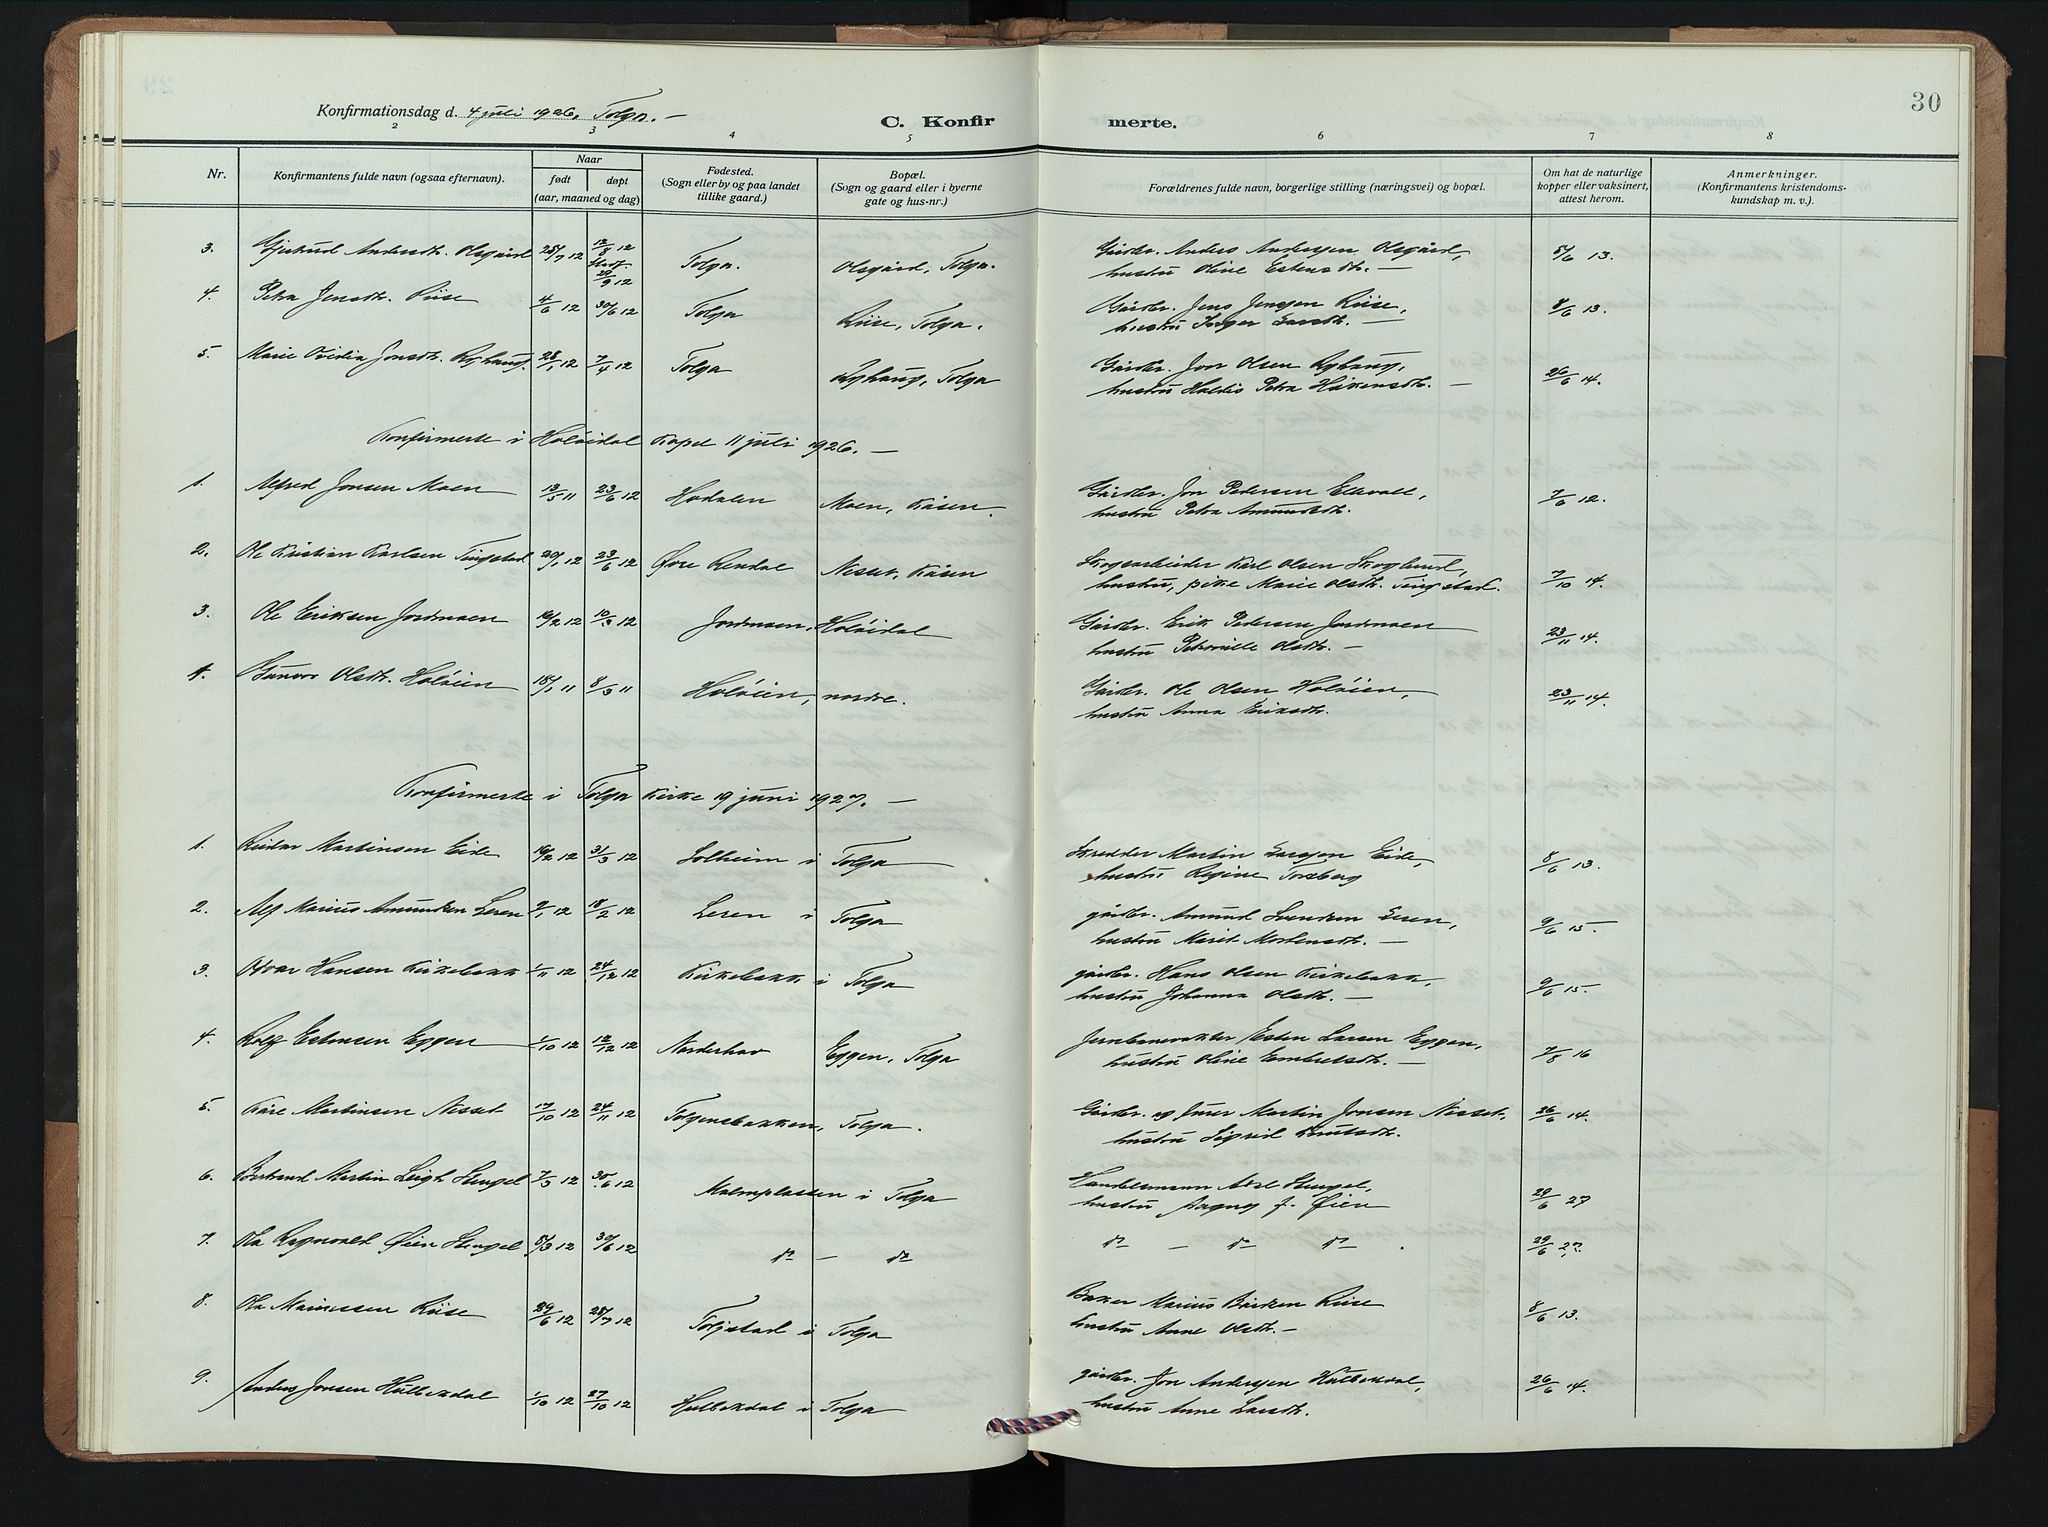 30
Konfirmationsdag d. 4 juli 1926, Tolga. —
C. Konfir merte.
2 3 4 5 6 7 8
Nr. Konfirmantens fulde navn (ogsaa efternavn). Naar født døpt (aar, maaned og dag) Fødested. (Sogn eller by og paa landet tillike gaard.) Bopæl. (Sogn og gaard eller i byerne gate og hus-nr.) Forældrenes fulde navn, borgerlige stilling (næringsvei) og bopæl. Om hat de naturlige kopper eller vaksinert, attest herom. Anmerkninger. (Konfirmantens kristendoms-kundskap m. v.).
3. Gjertrud Andersdtr. Olsgård 25/7 12 12/8 12 Stadf. 29/9 12 Tolga. Olsgård, Tolga. Gårdbr. Anders Andersen Olsgård, 5/6 13.
hustru Oline Estensdtr. —
4. Petra Jensdtr. Riise 4/6 12 30/6 12 Tolga Riise, Tolga. Gårdbr. Jens Jensen Riise, 8/6 13.
hustru Inger Larsdtr. —
5. Marie Ovidia Jonsdtr. Ryhaug. 28/1 12 7/4 12 Tolga Ryhaug, Tolga Gårdbr. Jon Olsen Ryhaug, 26/6 14.
hustru Haldis Petra Håkensdtr. —
Konfirmerte i Holøidal Kapel 11 juli 1926. —
1. Alfred Jonsen Moen 13/5 11 23/6 12 Hodalen Moen, Kåsen. Gårdbr. Jon Pedersen Ellevoll, 7/6 12.
hustru Petra Amundsdtr.
2. Ole Kristian Karlsen Tingstad 20/1 12 23/6 12 Øvre Rendal Nesset, Kåsen Skogsarbeider Karl Olsen Skoglund, 7/10 14.
hustru, pike Marie Olsdtr. Tingstad.
3. Ole Eriksen Jordmoen 16/2 12 10/3 12 Jordmoen, Holøidal Gårdbr. Erik Pedersen Jordmoen 23/11 14.
hustru Petronille Olsdtr. —
4. Gunvor Olsdtr. Holøien 18/1 11 8/3 11 Holøien, nordre. Gårdbr. Ole Olsen Holøien, 23/11 14.
hustru Anna Eriksdtr.
Konfirmerte i Tolga Kirke 19 juni 1927. —
1. Reidar Martinsen Eide 16/2 12 31/3 12 Solheim i Tolga Skredder Martin Larsen Eide, 8/6 13.
hustru Regine Torsberg
2. Alf Marius Amundsen Leren 9/1 12 18/2 12 Leren i Tolga gårdbr. Amund Svendsen Leren, 9/6 15.
hustru Marit Mortensdtr. —
3. Otvar Hansen Kirkebakk 1/11 12 24/12 12 Kirkebakk i Tolga gårdbr. Hans Olsen Kirkebakk, 9/6 15.
hustru Johanna Olsdtr. —
4. Rolf Estensen Eggen 1/10 12 12/12 12 Norderhov Eggen, Tolga Jernbanevokter Esten Larsen Eggen, 7/8 16
hustru Oline Embretsdtr. —
5. Kåre Martinsen Nesset 17/10 12 24/11 12 Tolgensbakken, Tolga. Gårdbr. og furer Martin Jonsen Nesset, 26/6 14.
hustru Sigrid Knutsdtr.
6. Bertrand Martin Leigh Stengel 7/3 12 30/6 12 Malmplassen i Tolga Handelsmann Axel Stengel, 29/6 27
hustru Magny f. Øien
7. Ola Ragnvald Øien Stengel 5/3 12 30/6 12 do — do do — do do . 29/6 27.
8. Ola Mariussen Riise 29/6 12 28/7 12 Toljstad i Tolga Baker Marius Bårdsen Riise 8/6 13.
hustru Anne Olsdtr. —
9. Anders Jonsen Hulbekdal 1/10 12 27/10 12 Hulbekdal i Tolga gårdbr. Jon Andersen Hulbekdal, 26/6 14.
hustru Anne Larsdtr.